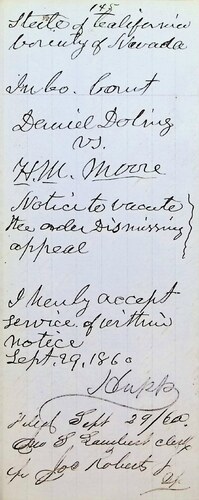 145
State of California
County of Nevada
In Co. Court
Daniel Doling
vs.
H.M. Moore
Notice to vacate
the order Dismissing
appeal
I herby accept
service of within
notice
Sept. 29, 1860
Filed Sept 29/60.
Lambert clerk
Joe Roberts Jr